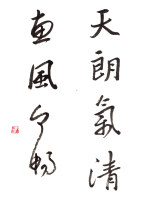 天朗氣清
惠風和暢